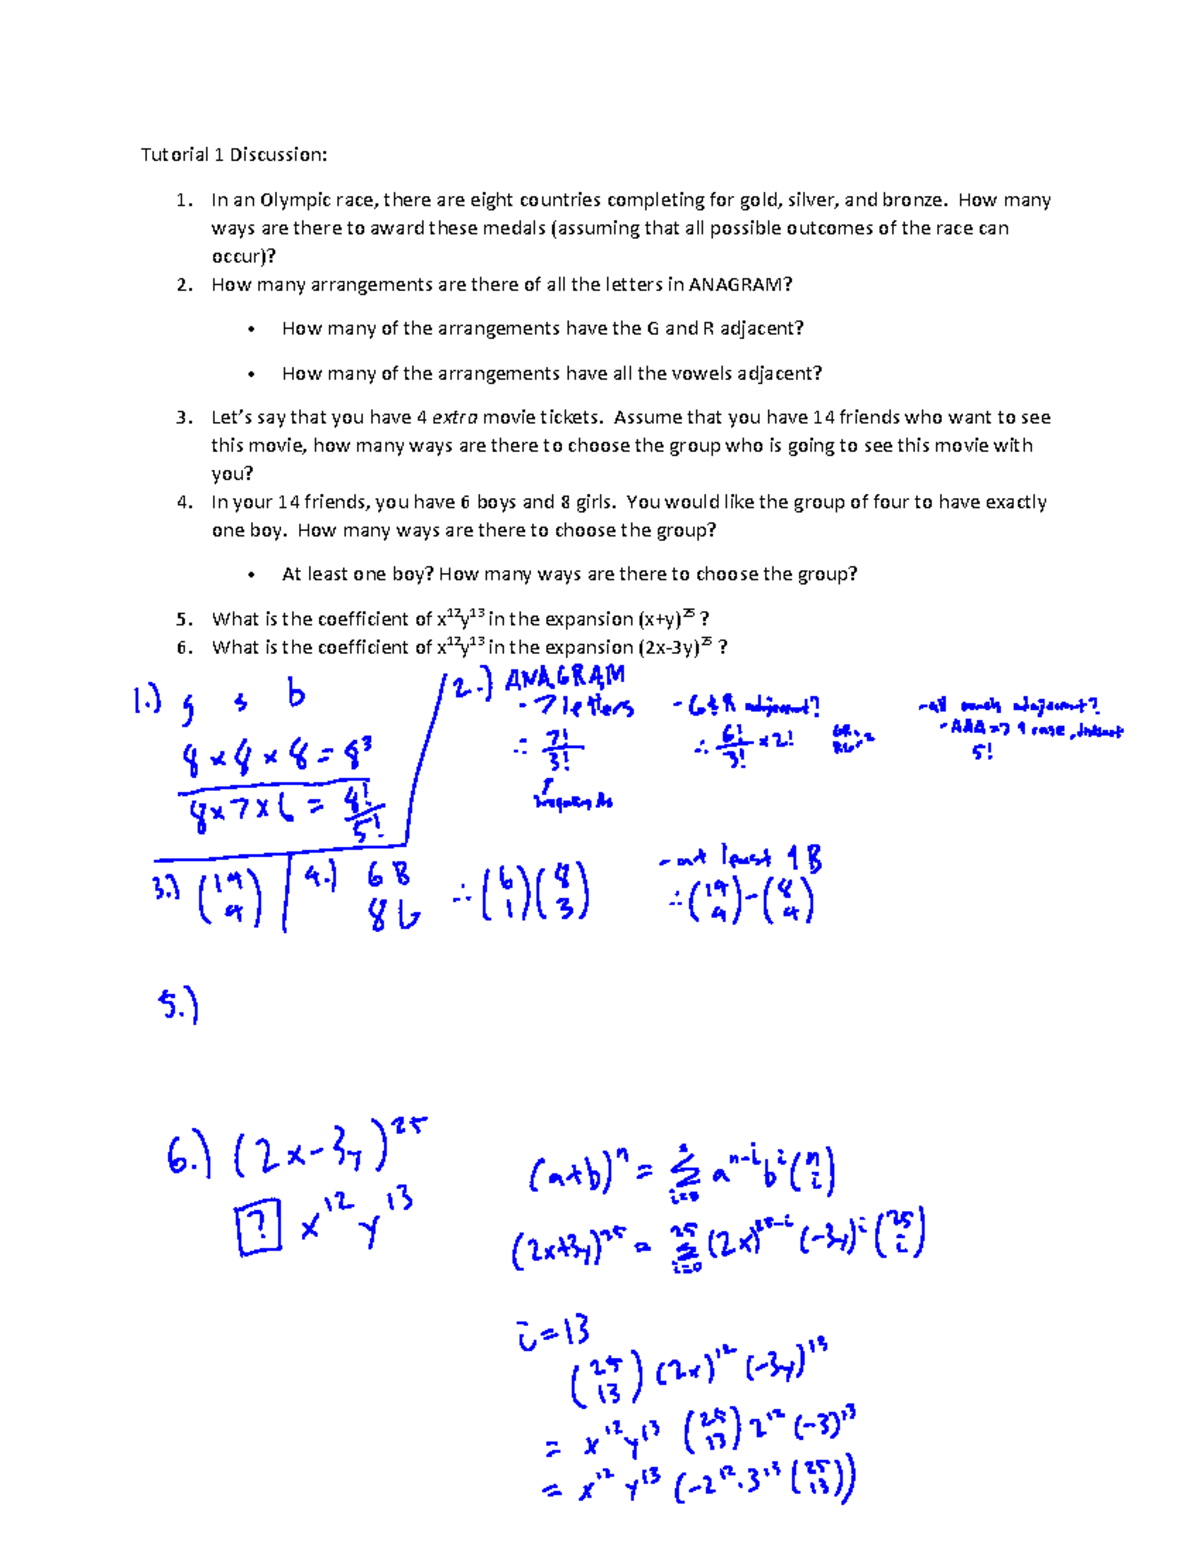 Tutorial 1 Discussion:
1. In an Olympic race, there are eight countries completing for gold, silver, and bronze. How many
ways are there to award these medals (assuming that all possible outcomes of the race can
occur)?
2. How many arrangements are there of all the letters in ANAGRAM?
• How many of the arrangements have the G and R adjacent?
• How many of the arrangements have all the vowels adjacent?
3. Let's say that you have 4 extra movie tickets. Assume that you have 14 friends who want to see
this movie, how many ways are there to choose the group who is going to see this movie with
you?
4. In your 14 friends, you have 6 boys and 8 girls. You would like the group of four to have exactly
one boy. How many ways are there to choose the group?
• At least one boy? How many ways are there to choose the group?
5. What is the coefficient of x¹²y¹³ in the expansion (x+y)²⁵ ?
6. What is the coefficient of x¹²y¹³ in the expansion (2x-3y)²⁵ ?
1.) g s b
8 × 8 × 8 = 8³
8 × 7 × 6 = 8!/5!
2.) ANAGRAM
- 7 letters
∴ 7!/3!
- G & R adjacent?
∴ 6!/3! × 2!
- all vowels adajacent?
- AAA => 1 case,
5!
3.) (14 4)
4.) 6B
8G
∴ (6 1)(8 3)
- at least 1 B
∴ (14 4) - (8 4)
5.)
6.) (2x-3y)²⁵
? x¹² y¹³
(a+b)ⁿ = Σ i=0 aⁿ⁻ⁱ bⁱ (n i)
(2x+3y)²⁵ = 25 Σ i=0 (2x)²⁵⁻ⁱ (-3y)ⁱ (25 i)
i=13
(25 13) (2x)¹² (-3y)¹³
= x¹² y¹³ (25 13) 2¹² (-3)¹³
= x¹² y¹³ (-2¹²·3¹³ (25 13))